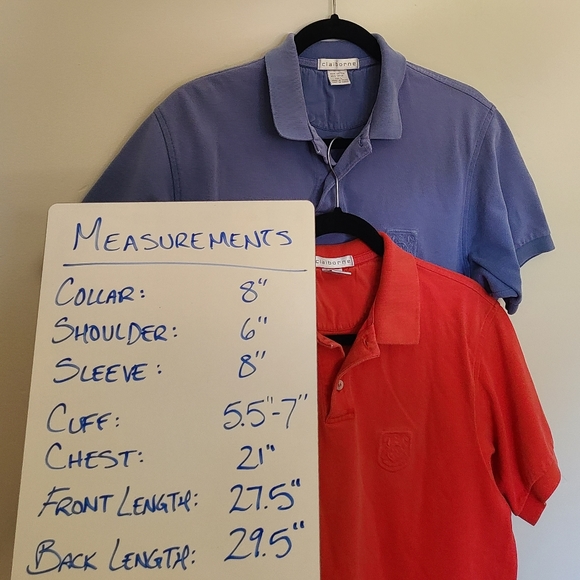 claiborne
claiborne
MEASUREMENTS
COLLAR: 8"
SHOULDER: 6"
SLEEVE: 8"
CUFF: 5.5"-7"
CHEST: 21"
FRONT LENGTH: 27.5"
BACK LENGTH: 29.5"